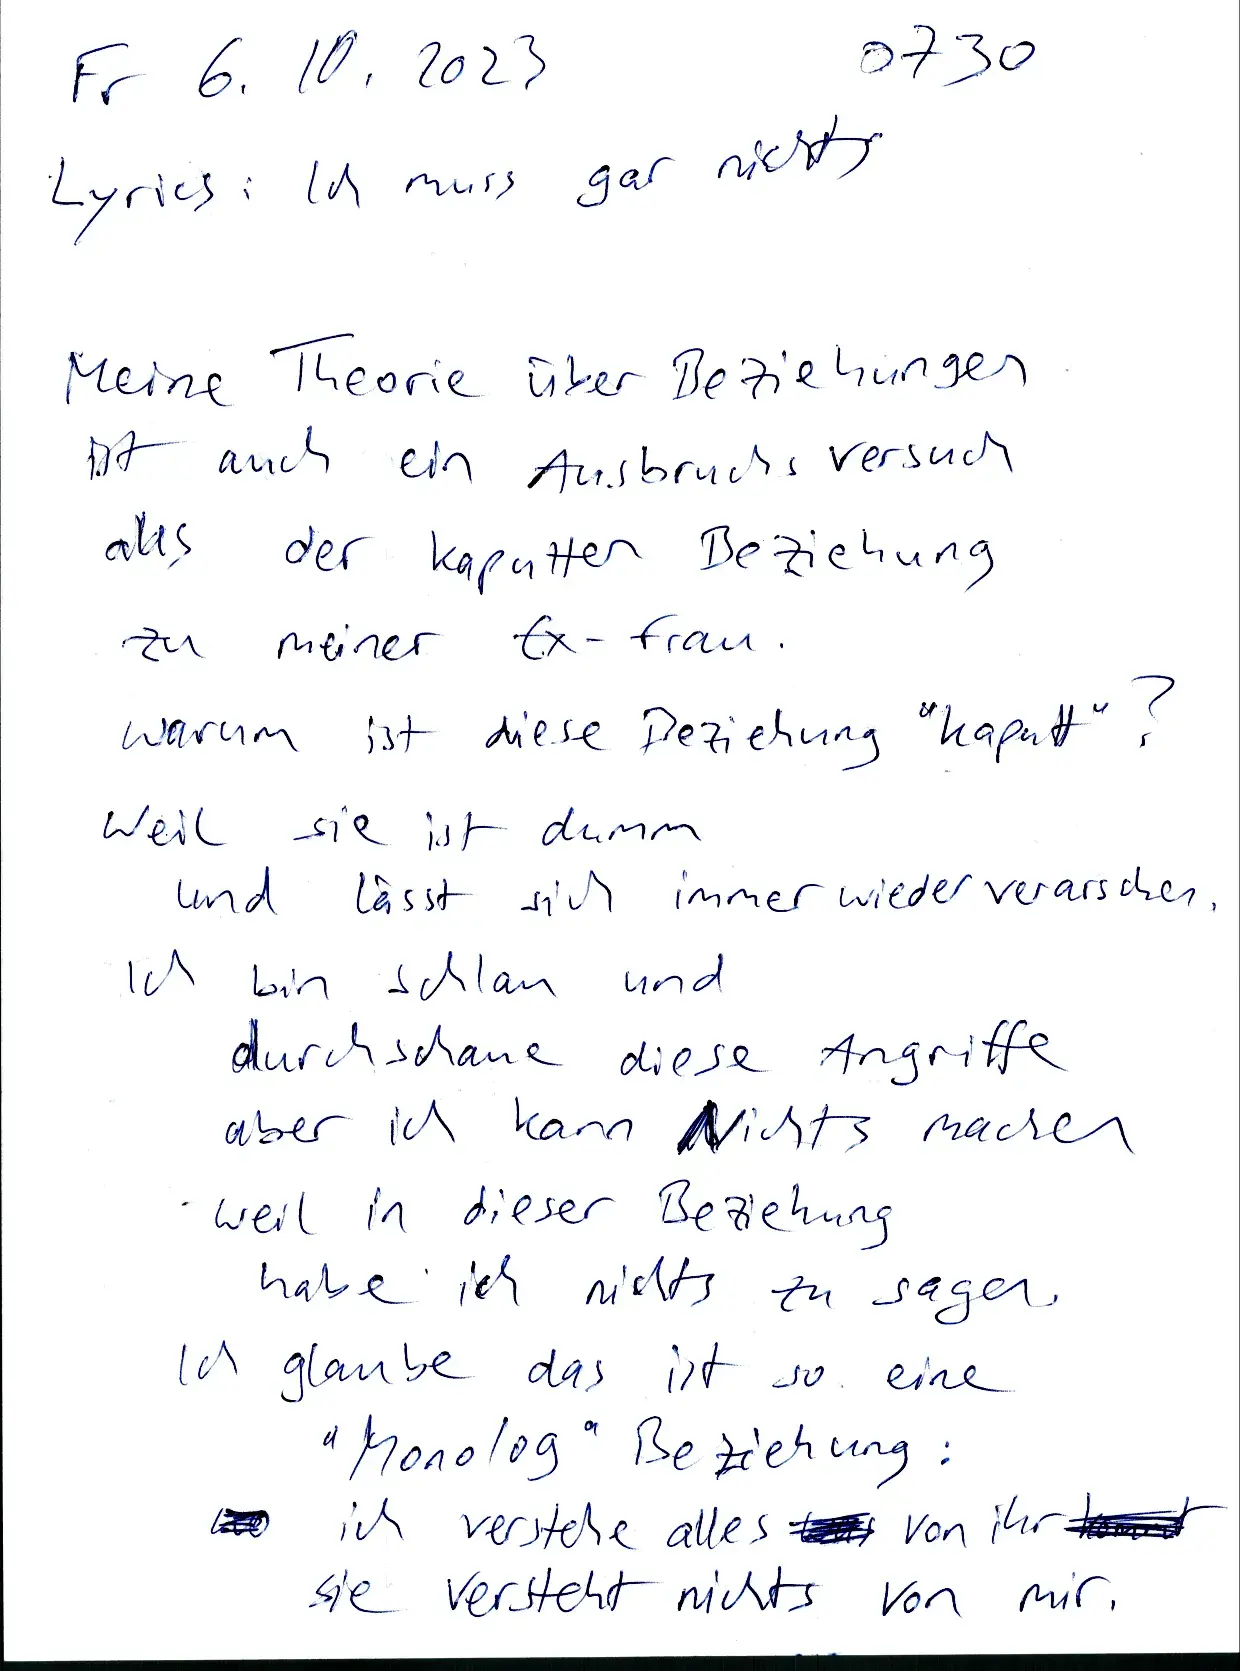 Fr 6. 10. 2023 0730
Lyrics: Ich muss gar nichts
Meine Theorie über Beziehungen
ist auch ein Ausbruchsversuch
aus der kaputten Beziehung
zu meiner Ex-Frau.
warum ist diese Beziehung "kaputt"?
Weil sie ist dumm
und lässt sich immer wieder verarschen.
Ich bin schlau und
durchschaue diese Angriffe
aber ich kann Nichts machen
weil in dieser Beziehung
habe ich nichts zu sagen.
Ich glaube das ist so eine
"Monolog" Beziehung:
ich verstehe alles von ihr
sie versteht nichts von mir.